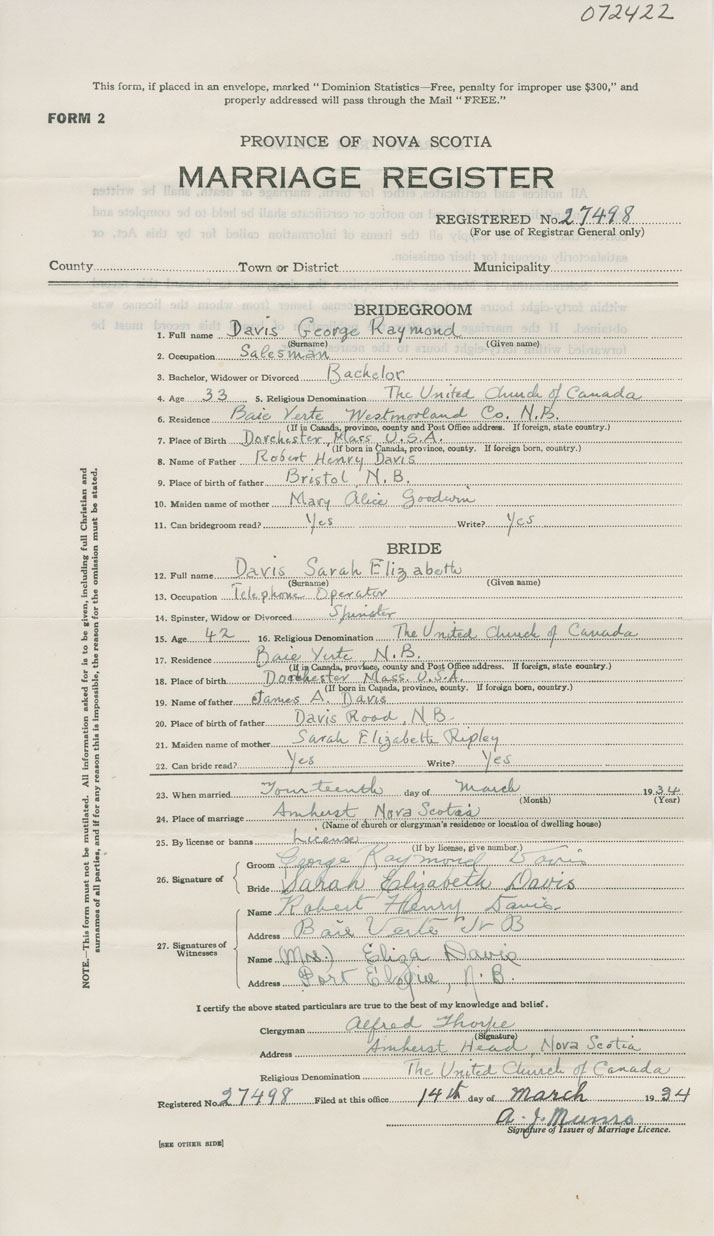 072422
This form, if placed in an envelope, marked "Dominion Statistics—Free, penalty for improper use $300," and
properly addressed will pass through the Mail "FREE."
FORM 2
PROVINCE OF NOVA SCOTIA
MARRIAGE REGISTER
REGISTERED No. 27498
(For use of Registrar General only)
County Town or District Municipality
BRIDEGROOM
1. Full name Davis George Raymond
(Surname) (Given name)
2. Occupation Salesman
3. Bachelor, Widower or Divorced Bachelor
4. Age 33 5. Religious Denomination The United Church of Canada
6. Residence Baie Verte Westmorland Co. N.B.
(If in Canada, province, county and Post Office address. If foreign, state country.)
7. Place of Birth Dorchester, Mass U.S.A.
(If born in Canada, province, county. If foreign born, country.)
8. Name of Father Robert Henry Davis
9. Place of birth of father Bristol, N.B.
10. Maiden name of mother Mary Alice Goodwin
11. Can bridegroom read? Yes Write? Yes
BRIDE
12. Full name Davis Sarah Elizabeth
(Surname) (Given name)
13. Occupation Telephone Operator
14. Spinster, Widow or Divorced Spinster
15. Age 42 16. Religious Denomination The United Church of Canada
17. Residence Baie Verte, N.B.
(If in Canada, province, county and Post Office address. If foreign, state country.)
18. Place of birth Dorchester Mass. U.S.A.
(If born in Canada, province, county. If foreign born, country.)
19. Name of father James A. Davis
20. Place of birth of father Davis Road, N.B.
21. Maiden name of mother Sarah Elizabeth Ripley
22. Can bride read? Yes Write? Yes
23. When married Fourteenth day of March 1934
(Month) (Year)
24. Place of marriage Amherst Nova Scotia
(Name of church or clergyman's residence or location of dwelling house)
25. By license or banns License
(If by license, give number.)
26. Signature of
Groom George Raymond Davis
Bride Sarah Elizabeth Davis
27. Signatures of Witnesses
Name Robert Henry Davis
Address Baie Verte N B
Name (Mrs.) Eliza Davis
Address Port Elgin, N.B.
I certify the above stated particulars are true to the best of my knowledge and belief.
Clergyman Alfred Thorpe
(Signature)
Address Amherst Head, Nova Scotia
Religious Denomination The United Church of Canada
Registered No. 27498 Filed at this office 14th day of March 1934
A. J. Munro
Signature of Issuer of Marriage Licence.
[SEE OTHER SIDE]
NOTE.—This form must not be mutilated. All information asked for is to be given, including full Christian and
surnames of all parties, and if for any reason this is impossible, the reason for the omission must be stated.